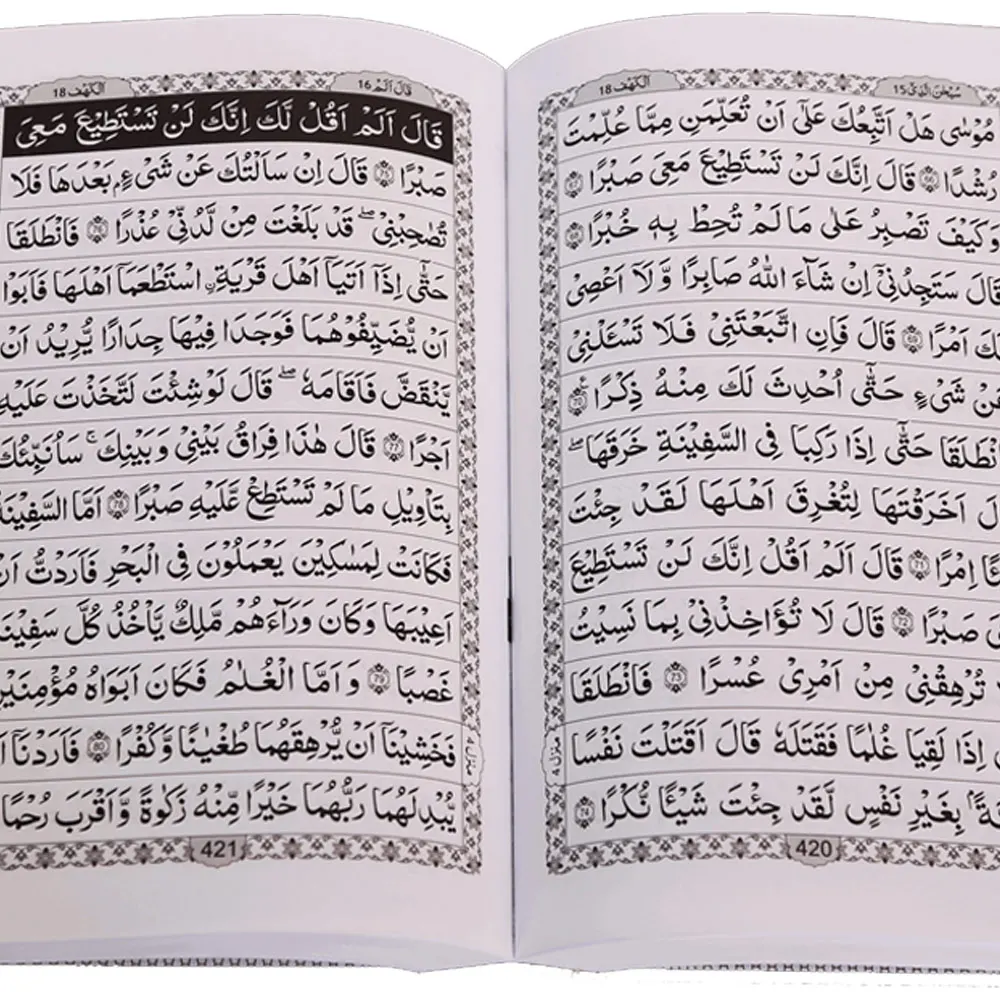 الكهف 18 سبحن الذی 15
مُوْسٰى هَلْ اَتَّبِعُكَ عَلٰٓى اَنْ تُعَلِّمَنِ مِمَّا عُلِّمْتَ
رُشْدًا ﴿66﴾ قَالَ اِنَّكَ لَنْ تَسْتَطِيْعَ مَعِىَ صَبْرًا ﴿67﴾
وَكَيْفَ تَصْبِرُ عَلٰى مَا لَمْ تُحِطْ بِهٖ خُبْرًا ﴿68﴾
قَالَ سَتَجِدُنِىْٓ اِنْ شَآءَ اللّٰهُ صَابِرًا وَّلَآ اَعْصِىْ
لَكَ اَمْرًا ﴿69﴾ قَالَ فَاِنِ اتَّبَعْتَنِىْ فَلَا تَسْـَٔلْنِىْ
عَنْ شَىْءٍ حَتّٰٓى اُحْدِثَ لَكَ مِنْهُ ذِكْرًا ﴿70﴾
فَانْطَلَقَا حَتّٰٓى اِذَا رَكِبَا فِى السَّفِيْنَةِ خَرَقَهَا ؕ
قَالَ اَخَرَقْتَهَا لِتُغْرِقَ اَهْلَهَا لَقَدْ جِئْتَ
شَيْـًٔا اِمْرًا ﴿71﴾ قَالَ اَلَمْ اَقُلْ اِنَّكَ لَنْ تَسْتَطِيْعَ
مَعِىَ صَبْرًا ﴿72﴾ قَالَ لَا تُؤَاخِذْنِىْ بِمَا نَسِيْتُ
وَلَا تُرْهِقْنِىْ مِنْ اَمْرِىْ عُسْرًا ﴿73﴾ فَانْطَلَقَا
حَتّٰٓى اِذَا لَقِيَا غُلٰمًا فَقَتَلَهٗ قَالَ اَقَتَلْتَ نَفْسًا
زَكِيَّةًۢ بِغَيْرِ نَفْسٍ لَقَدْ جِئْتَ شَيْـًٔا نُّكْرًا ﴿74﴾
منزل 4
420
الكهف 18 قال الم 16
قَالَ اَلَمْ اَقُلْ لَّكَ اِنَّكَ لَنْ تَسْتَطِيْعَ مَعِىَ
صَبْرًا ﴿75﴾ قَالَ اِنْ سَاَلْتُكَ عَنْ شَىْءٍۭ بَعْدَهَا فَلَا
تُصٰحِبْنِىْ ۚ قَدْ بَلَغْتَ مِنْ لَّدُنِّىْ عُذْرًا ﴿76﴾ فَانْطَلَقَا
حَتّٰٓى اِذَآ اَتَيَآ اَهْلَ قَرْيَةِ ۟اسْتَطْعَمَآ اَهْلَهَا فَاَبَوْا
اَنْ يُّضَيِّفُوْهُمَا فَوَجَدَا فِيْهَا جِدَارًا يُّرِيْدُ اَنْ
يَّنْقَضَّ فَاَقَامَهٗ ؕ قَالَ لَوْ شِئْتَ لَتَّخَذْتَ عَلَيْهِ
اَجْرًا ﴿77﴾ قَالَ هٰذَا فِرَاقُ بَيْنِىْ وَبَيْنِكَ ۚ سَاُنَبِّئُكَ
بِتَاْوِيْلِ مَا لَمْ تَسْتَطِعْ عَّلَيْهِ صَبْرًا ﴿78﴾ اَمَّا السَّفِيْنَةُ
فَكَانَتْ لِمَسٰكِيْنَ يَعْمَلُوْنَ فِى الْبَحْرِ فَاَرَدْتُّ اَنْ
اَعِيْبَهَا وَكَانَ وَرَآءَهُمْ مَّلِكٌ يَّاْخُذُ كُلَّ سَفِيْنَةٍ
غَصْبًا ﴿79﴾ وَاَمَّا الْغُلٰمُ فَكَانَ اَبَوٰهُ مُؤْمِنَيْنِ
فَخَشِيْنَآ اَنْ يُّرْهِقَهُمَا طُغْيَانًا وَّكُفْرًا ﴿80﴾ فَاَرَدْنَآ
يُّبْدِلَهُمَا رَبُّهُمَا خَيْرًا مِّنْهُ زَكٰوةً وَّاَقْرَبَ رُحْمًا
منزل 4
421